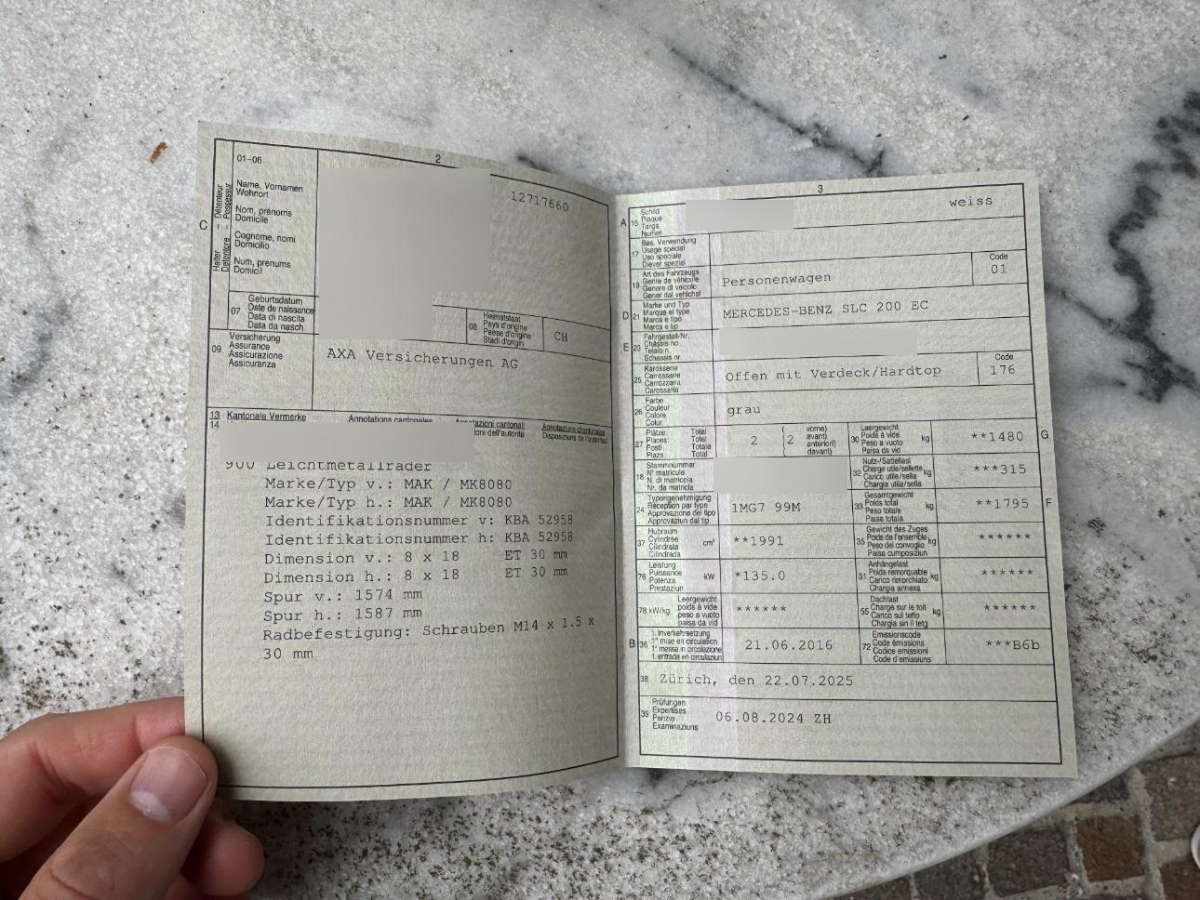 2
01-06
12717660
C
Halter
Détenteur
Detentore
Possessur
Name, Vornamen
Wohnort
Nom, prénoms
Domicile
Cognome, nomi
Domicilio
Num, prenums
Domicil
07 Geburtsdatum
Date de naissance
Data di nascita
Data da nasch.
08 Heimatstaat
Pays d'origine
Paese d'origine
Stadi d'origin
CH
09 Versicherung
Assurance
Assicurazione
Assicuranza
AXA Versicherungen AG
13 Kantonale Vermerke Annotations cantonales
14
900 Leichtmetallräder
Marke/Typ v.: MAK / MK8080
Marke/Typ h.: MAK / MK8080
Identifikationsnummer v: KBA 52958
Identifikationsnummer h: KBA 52958
Dimension v.: 8 x 18 ET 30 mm
Dimension h.: 8 x 18 ET 30 mm
Spur v.: 1574 mm
Spur h.: 1587 mm
Radbefestigung: Schrauben M14 x 1.5 x
30 mm
3
A 15 Schild
Plaque
Targa
Numer
weiss
17 Bes. Verwendung
Usage spécial
Uso speciale
Diever spezial
19 Art des Fahrzeugs
Genre de véhicule
Genere di veicolo
Gener dal vehichel
Personenwagen
Code
01
D 21 Marke und Typ
Marque et type
Marca e tipo
Marca e tip
MERCEDES-BENZ SLC 200 EC
E 23 Fahrgestell-Nr.
Châssis no
Telaio n.
Schassis nr.
25 Karosserie
Carrosserie
Carrozzeria
Carossaria
Offen mit Verdeck/Hardtop
Code
176
26 Farbe
Couleur
Colore
Colur
grau
27 Plätze: Total
Places: Total
Posti: Totale
Plazs: Total
2 (2 vorne)
avant)
anteriori)
davant)
30 Leergewicht
Poids à vide
Peso a vuoto
Paisa da vid
kg
**1480
G
18 Stammnummer
N° matricule
N. di matricola
Nr. da matricla
32 Nutz-/Sattellast
Charge utile/sellette
Carico utile/sella
Chargia utila/sella
kg
***315
24 Typengenehmigung
Réception par type
Approvazione del tipo
Approvaziun dal tip
1MG7 99M
33 Gesamtgewicht
Poids total
Peso totale
Paisa totala
kg
**1795
F
37 Hubraum
Cylindrée
Cilindrata
Cilindrada
cm³
**1991
35 Gewicht des Zuges
Poids de l'ensemble
Peso del convoglio
Paisa cumposiziun
kg
******
76 Leistung
Puissance
Potenza
Prestaziun
kW
*135.0
31 Anhängelast
Poids remorquable
Carico rimorchiato
Chargia annexa
kg
******
78 kW/kg Leergewicht
poids à vide
peso a vuoto
paisa da vid
******
55 Dachlast
Charge sur le toit
Carico sul tetto
Chargia sin il tetg
kg
******
B 36 1. Inverkehrsetzung
1re mise en circulation
1a messa in circolazione
1. entrada en circulaziun
21.06.2016
72 Emissionscode
Code émissions
Codice emissioni
Code d'emissiuns
***B6b
38 Zürich, den 22.07.2025
39 Prüfungen
Expertises
Perizie
Examinaziuns
06.08.2024 ZH